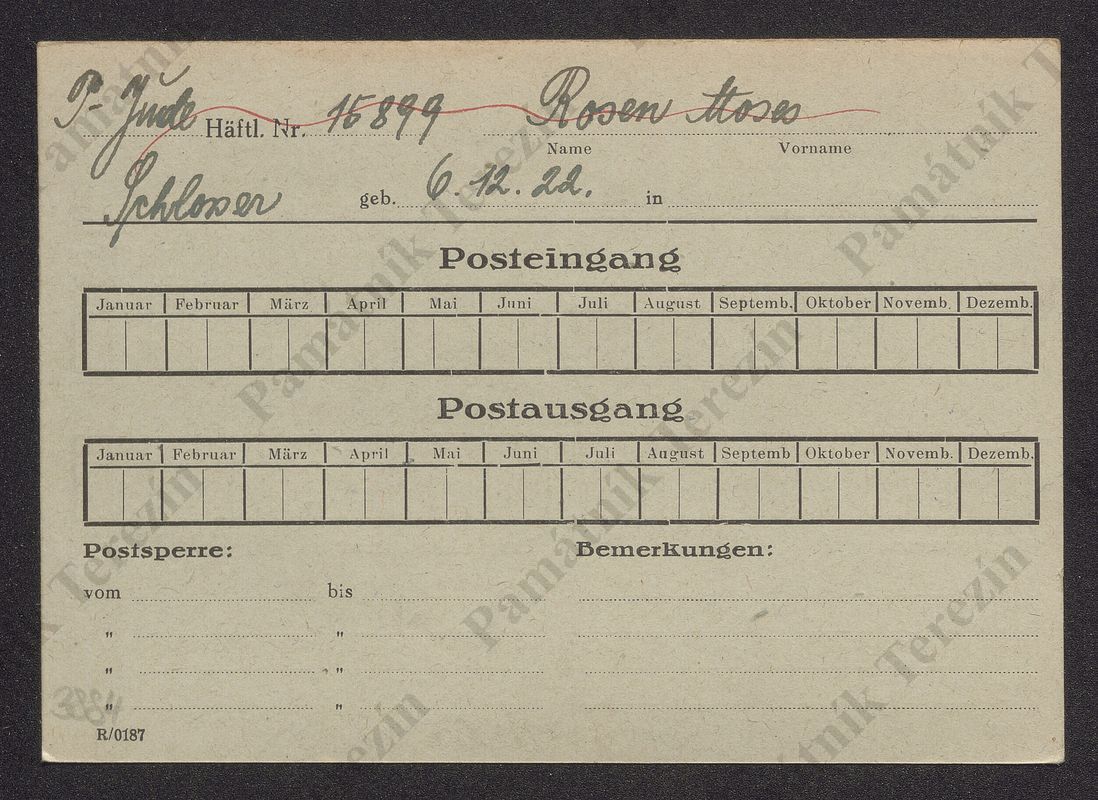 P- Jude Häftl. Nr. 15899 Rosen Moses
Name Vorname
Schlosser geb. 6. 12. 22. in
Posteingang
Januar Februar März April Mai Juni Juli August Septemb. Oktober Novemb. Dezemb.
Postausgang
Januar Februar März April Mai Juni Juli August Septemb Oktober Novemb. Dezemb.
Postsperre: Bemerkungen:
vom bis
" "
" "
" "
R/0187
Památník Terezín